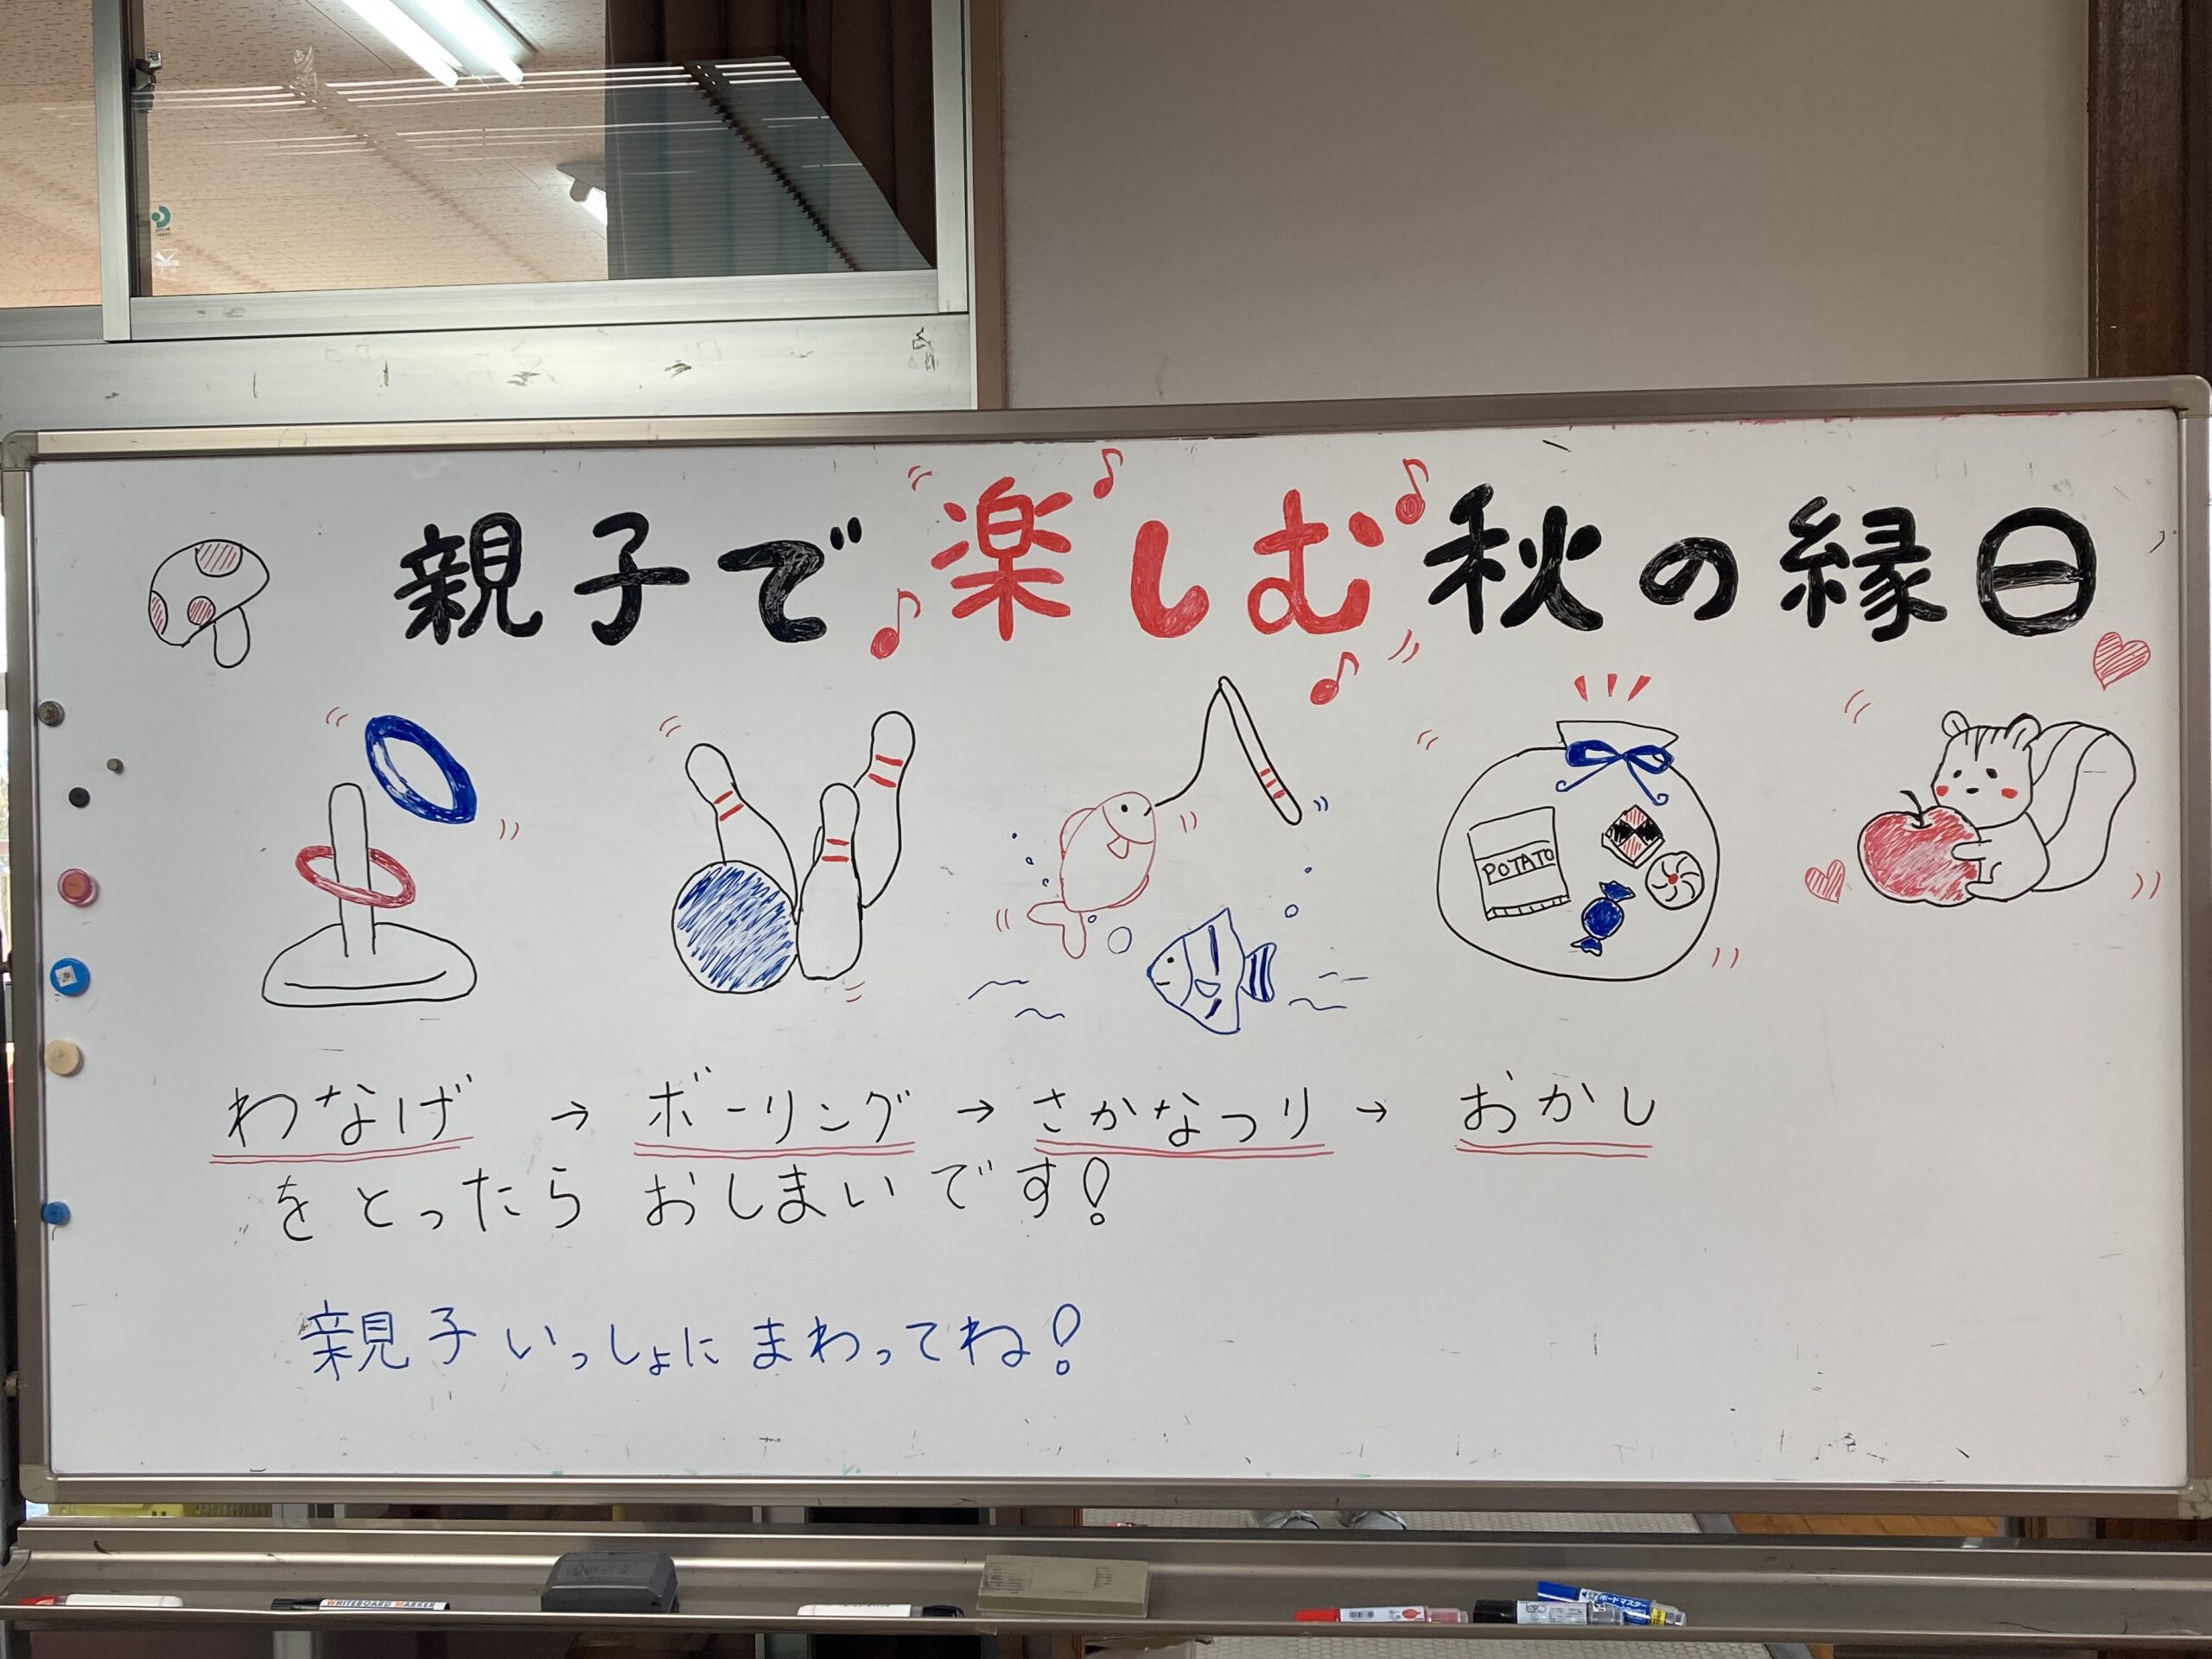 親子で楽しむ秋の縁日
POTATO
わなげ → ボーリング → さかなつり → おかし
をとったら おしまいです!
親子いっしょに まわってね!
WHITEBOARD MARKER
ボードマスター